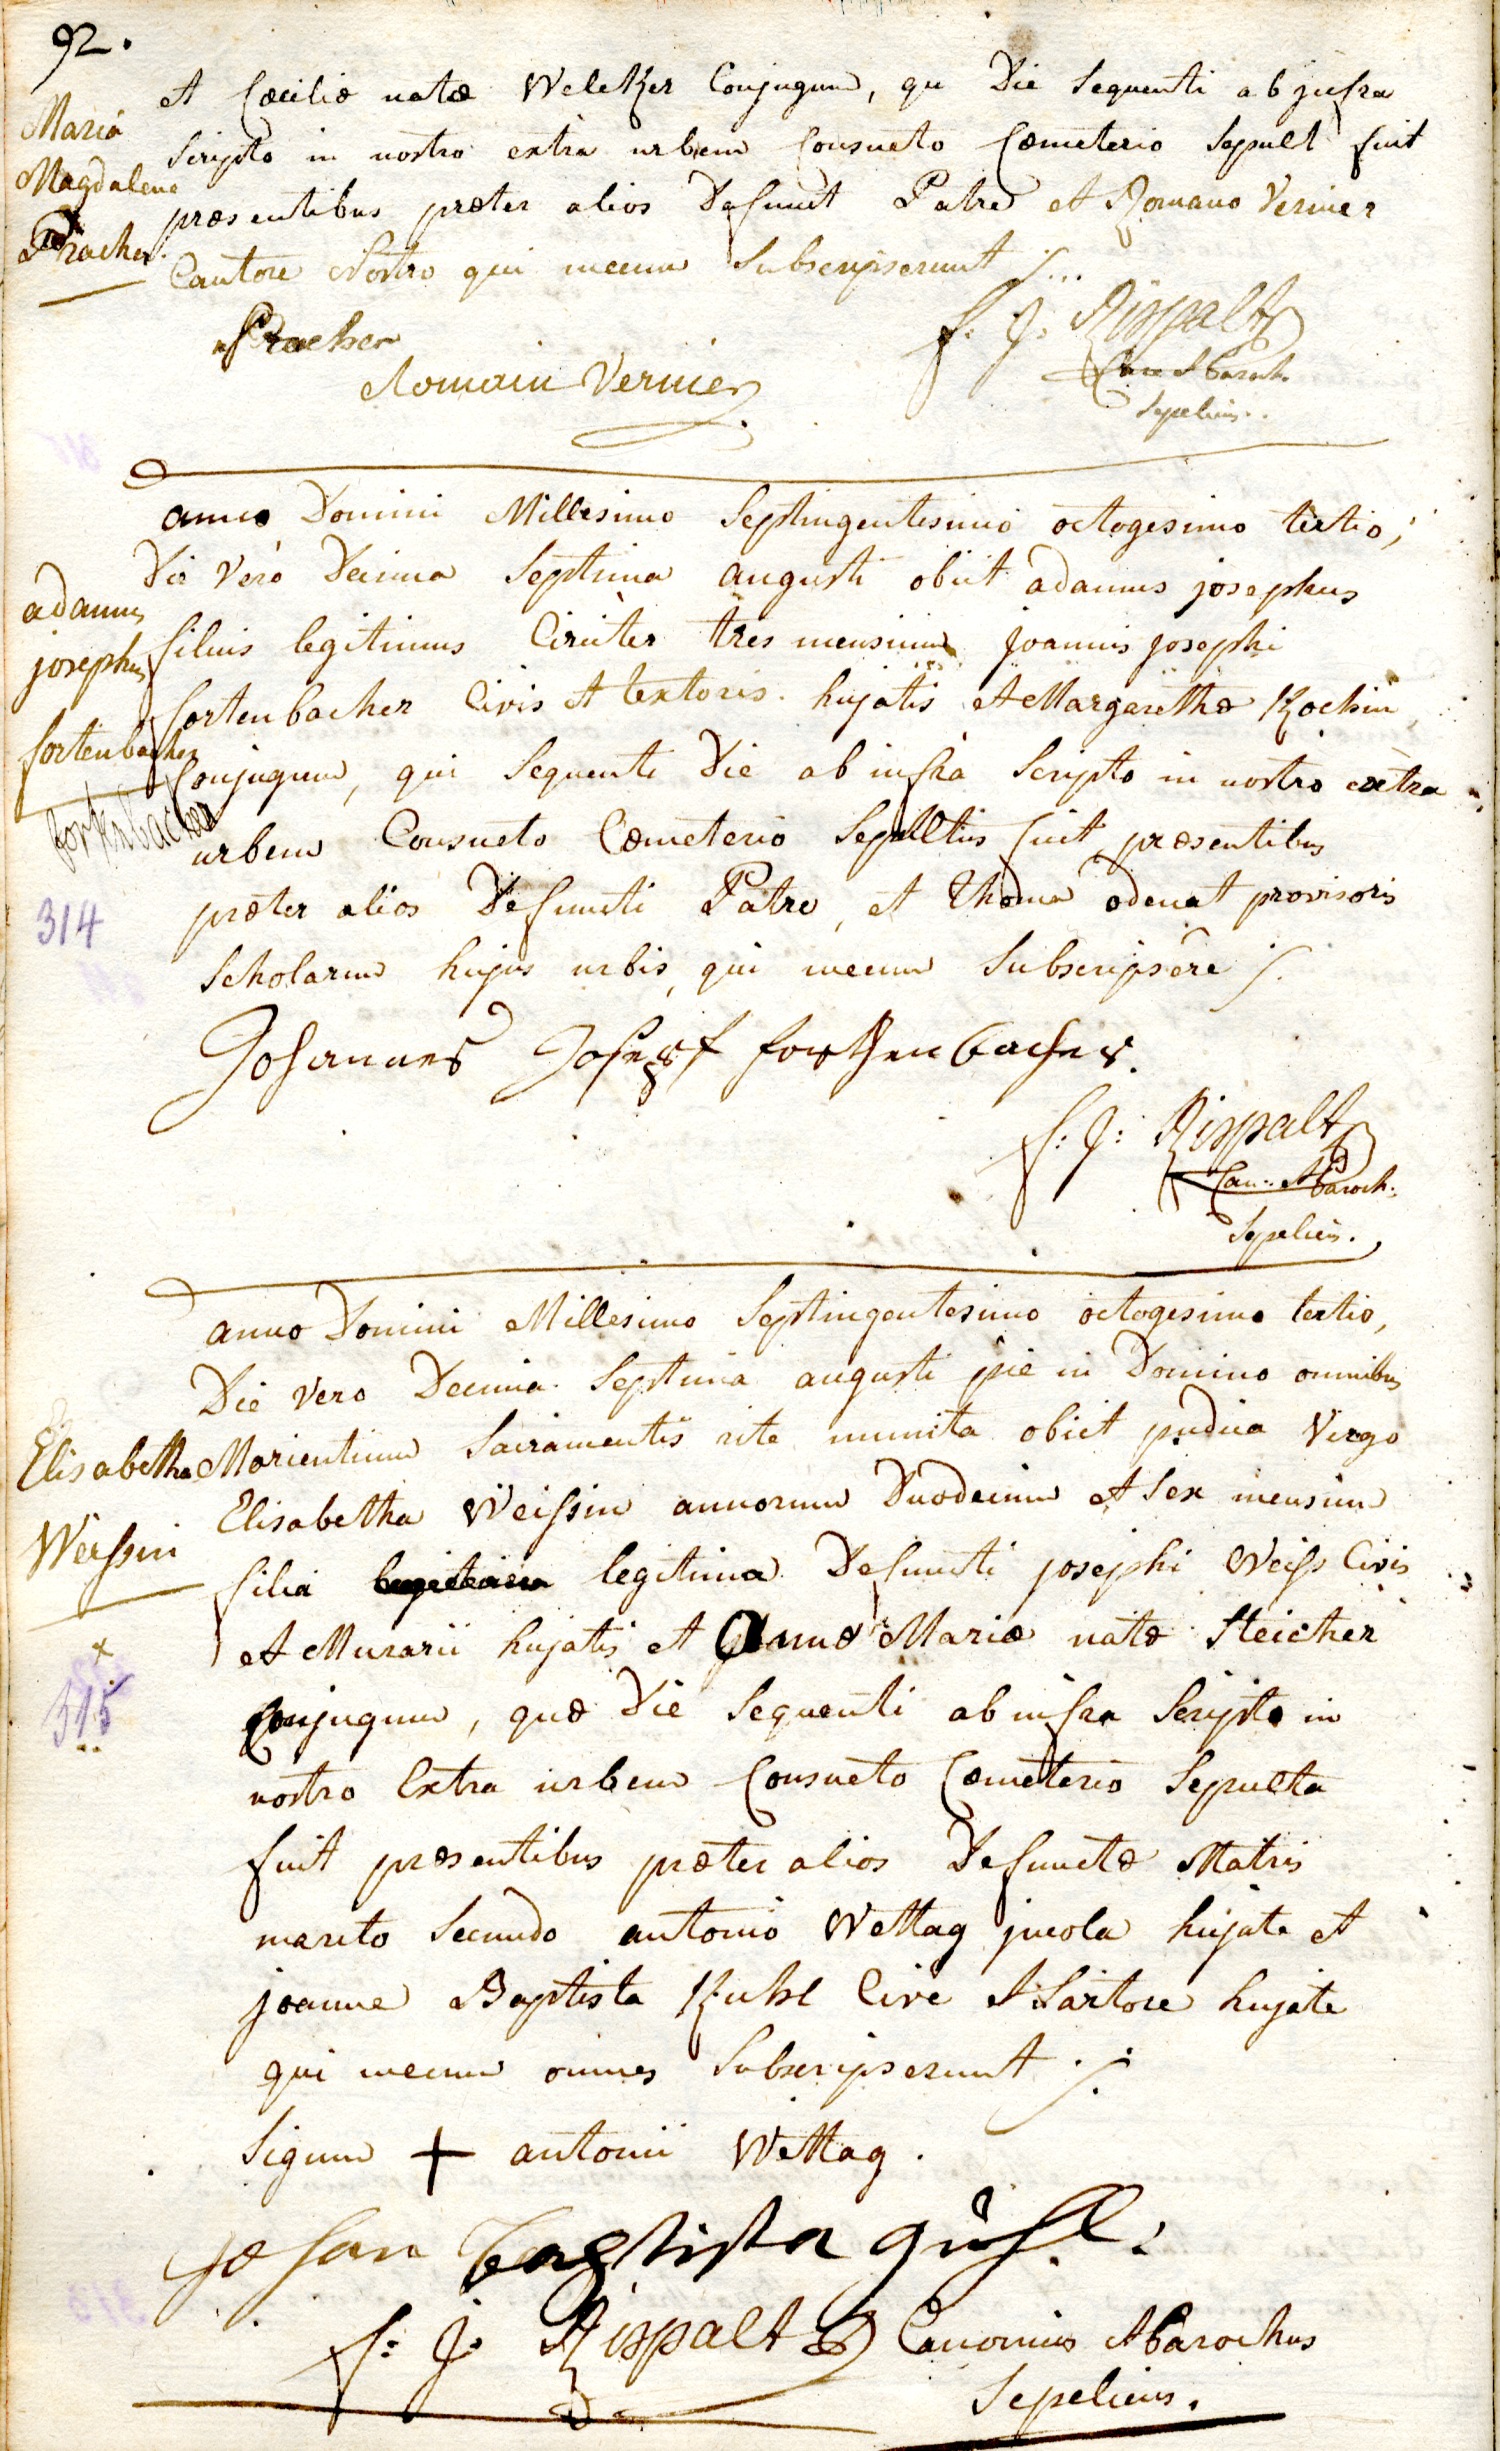 92.
Maria
Magdalena
Pracher.
et Cæciliæ natæ Welcker Conjugum, qu Die Sequenti ab jnfra
Scripto in nostro extra urbem Consueto Cœmeterio Sepult fuit
præsentibus præter alios Defunct Patre et Romano Vernier
Cantore Nostro qui mecum Subscripserunt ./...
Pracher
Romain Vernier
f. J. Rispalt
Can et Paroch.
Sepeliens..
adamus
josephus
fortenbacher
fortenbacher
314
anno Domini Millesimo Septingentesimo octogesimo tertio,
Die Vero Decima Septima augusti obiit adamus josephus
filius legitimus Circiter tres mensium joannis josephi
fortenbacher Civis et textoris hujatis et Margarethæ Kochin
Conjugum, qui Sequenti Die ab infra Scripto in nostro extra
urbem Consueto Cœmeterio Sepultus fuit præsentibus
præter alios Defuncti Patre, et Thoma odenat provisoris
Scholarum hujus urbis, qui mecum Subscripsere ./.
Johannes Josepf forthenbacher.
f: J: Rispalt
Can: et Paroch:
Sepeliens.
Elisabetha
Weissin
x
315
anno Domini Millesimo Septingentesimo octogesimo tertio,
Die Vero Decima Septima augusti pie in Domino omnibus
Morientium Sacramentis rite munita obiit pudica Virgo
Elisabetha Weissin annorum Duodecim et Sex mensium
filia legitima Defuncti josephi Weiss Civis
et Murarii hujatis et Annæ Mariæ natæ Steicher
Conjugum, quæ Die Sequenti ab infra Scripto in
nostro Extra urbem Consueto Cœmeterio Sepulta
fuit præsentibus præter alios Defunctæ Matris
marito Secundo antonio Wettag jncola hujate et
joanne Baptista Kuhl Cive et Sartore hujate
qui mecum omnes Subscripserunt ./.
Signum + antonii Wettag.
Johan Baptista gühl:
f: J: Rispalt Canonicus et Parochus
Sepeliens.